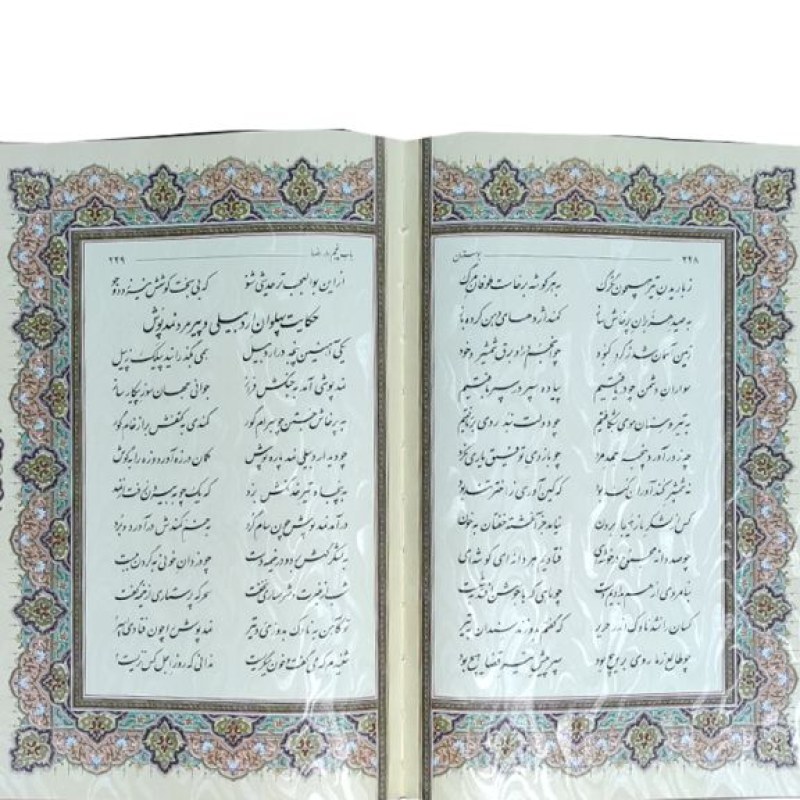 ۲۲۸ بوستان
ز باریدن تیر همچون تگرگ به هر گوشه برخاست طوفان مرگ
به صید هژبران پرخاش ساز کمند اژدهای دهن کرده باز
زمین آسمان شد ز گرد کبود چو انجم در او برق شمشیر و خود
سواران دشمن چو دریافتیم پیاده سپر در سپر بافتیم
به تیر و سنان موی بشکافتیم چو دولت نبد روی برتافتیم
چه زور آورد پنجه جهد مرد چو بازوی توفیق یاری نکرد
نه شمشیر کندآوران کند بود که کین آوری ز اختر تند بود
کس از لشکر ما ز هیجا برون نیامد جز آغشته خفتان به خون
چو صد دانه مجموع در خوشه‌ای فتادیم هر دانه‌ای گوشه‌ای
به نامردی از هم بدادیم دست چو ماهی که با جوشن افتد به شست
کسان را نشد ناوک اندر حریر که گفتم بدوزند سندان به تیر
چو طالع ز ما روی بر پیچ بود سپر پیش تیر قضا هیچ بود
باب پنجم در رضا ۲۲۹
از این بوالعجب‌تر حدیثی شنو که بی بخت کوشش نیرزد دو جو
حکایت پهلوان اردبیلی و پیرمرد نمدپوش
یکی آهنین پنجه در اردبیل همی بگذرانید پیلک ز بیل
نمدپوشی آمد به جنگش فراز جوانی جهان سوز پیکار ساز
به پرخاش جستن چو بهرام گور کمندی به کتفش بر از خام گور
چو دید اردبیلی نمد پاره پوش کمان در زه آورد و زه را به گوش
به پنجاه تیر خدنگش بزد که یک چوبه بیرون نرفت از نمد
درآمد نمدپوش چون سام گرد به خم کمندش درآورد و برد
به لشکرگهش برد و در خیمه دست چو دزدان خونی به گردن ببست
شب از غیرت و شرمساری نخفت سحرگه پرستاری از خیمه گفت
تو کآهن به ناوک بدوزی و تیر نمدپوش را چون فتادی اسیر
شنیدم که می‌گفت و خون می‌گریست ندانی که روز اجل کس نزیست؟